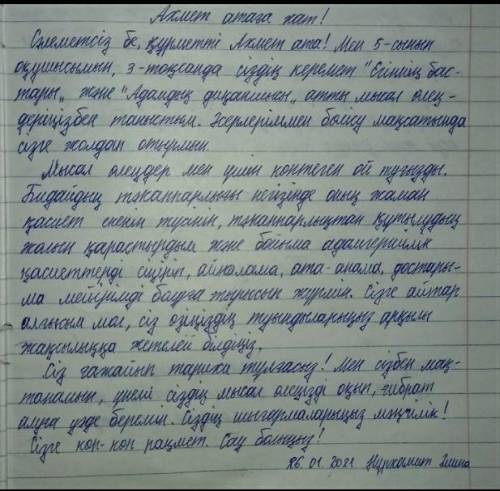 Ахмет атаға хат!
Сәлеметсіз бе, құрметті Ахмет ата! Мен 5-сынып
оқушысымын, 3-тоқсанда сіздің керемет "Егіннің бас-
тары„ және "Адамдық диқаншысы„ атты мысал өлең-
деріңізбен таныстым. Әсерлеріммен бөлісу мақсатында
сізге жолдап отырмын.
Мысал өлеңдер мен үшін көптеген ой туғызды.
Бидайдың тәкаппарлығы негізінде оның жаман
қасиет екенін түсініп, тәкаппарлықтан құтылудың
жолын қарастырдым және бойыма адамгершілік
қасиеттерді сіңіріп, айналама, ата-анама, достары-
ма мейірімді болуға тырысып жүрмін. Сізге айтар
алғысым мол, сіз өзіңіздің туындыларыңыз арқылы
жақсылыққа жетелей білдіңіз.
Сіз ғажайып тарихи тұлғасыз! Мен сізбен мақ-
танамын, үнемі сіздің мысал өлеңізді оқып, ғибрат
алуға үзде беремін. Сіздің шығармаларыңыз мәңгілік!
Сізге көп-көп рақмет. Сау болыңыз!
26.01.2021 Нұрхамит